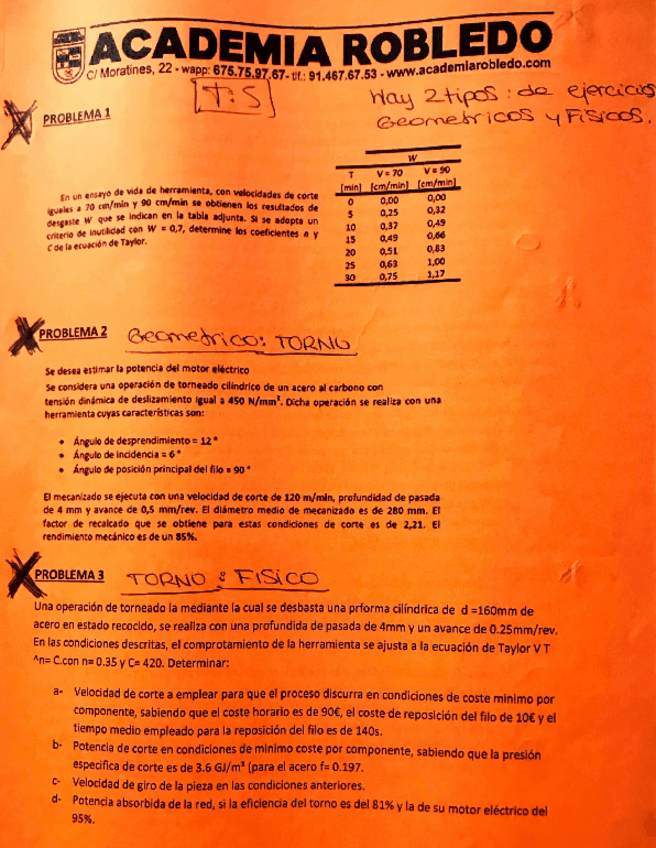 ACADEMIA ROBLEDO
C/ Moratines, 22 - wapp: 675.75.97.67- tlf.: 91.467.67.53 - www.academiarobledo.com
T:5
Hay 2 tipos: de ejercicios
Geometricos y Fisicos.
PROBLEMA 1
En un ensayo de vida de herramienta, con velocidades de corte
iguales a 70 cm/min y 90 cm/min se obtienen los resultados de
desgaste W que se indican en la tabla adjunta. Si se adopta un
criterio de inutilidad con W = 0,7, determine los coeficientes n y
C de la ecuación de Taylor.
W
T V = 70 V = 90
[min] [cm/min] [cm/min]
0 0,00 0,00
5 0,25 0,32
10 0,37 0,49
15 0,49 0,66
20 0,51 0,83
25 0,63 1,00
30 0,75 1,17
PROBLEMA 2 Geometrico: TORNO
Se desea estimar la potencia del motor eléctrico
Se considera una operación de torneado cilíndrico de un acero al carbono con
tensión dinámica de deslizamiento igual a 450 N/mm². Dicha operación se realiza con una
herramienta cuyas características son:
• Ángulo de desprendimiento = 12 °
• Ángulo de incidencia = 6 °
• Ángulo de posición principal del filo = 90 °
El mecanizado se ejecuta con una velocidad de corte de 120 m/min, profundidad de pasada
de 4 mm y avance de 0,5 mm/rev. El diámetro medio de mecanizado es de 280 mm. El
factor de recalcado que se obtiene para estas condiciones de corte es de 2,21. El
rendimiento mecánico es de un 85%.
PROBLEMA 3 TORNO : FISICO
Una operación de torneado la mediante la cual se desbasta una prforma cilíndrica de d =160mm de
acero en estado recocido, se realiza con una profundida de pasada de 4mm y un avance de 0.25mm/rev.
En las condiciones descritas, el comprotamiento de la herramienta se ajusta a la ecuación de Taylor V T
^n= C.con n= 0.35 y C= 420. Determinar:
a- Velocidad de corte a emplear para que el proceso discurra en condiciones de coste minimo por
componente, sabiendo que el coste horario es de 90€, el coste de reposición del filo de 10€ y el
tiempo medio empleado para la reposición del filo es de 140s.
b- Potencia de corte en condiciones de minimo coste por componente, sabiendo que la presión
especifica de corte es de 3.6 GJ/m³ (para el acero f= 0.197.
c- Velocidad de giro de la pieza en las condiciones anteriores.
d- Potencia absorbida de la red, si la eficiencia del torno es del 81% y la de su motor eléctrico del
95%.